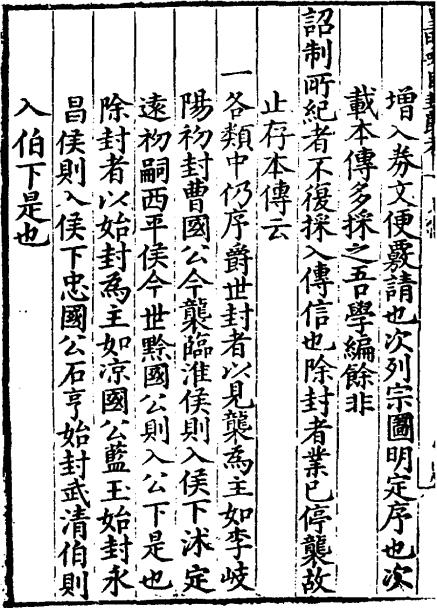 增入券文便覈請也次列宗圖明定序也次
載本傳多採之吾學編餘非
詔制所紀者不復採入傳信也除封者業已停襲故
止存本傳云
一各類中仍序爵世封者以見襲為主如李岐
陽初封曹國公今襲臨淮侯則入侯下沐定
遠初嗣西平侯今世黔國公則入公下是也
除封者以始封為主如凉國公藍玉始封永
昌侯則入侯下忠國公石亨始封武清伯則
入伯下是也